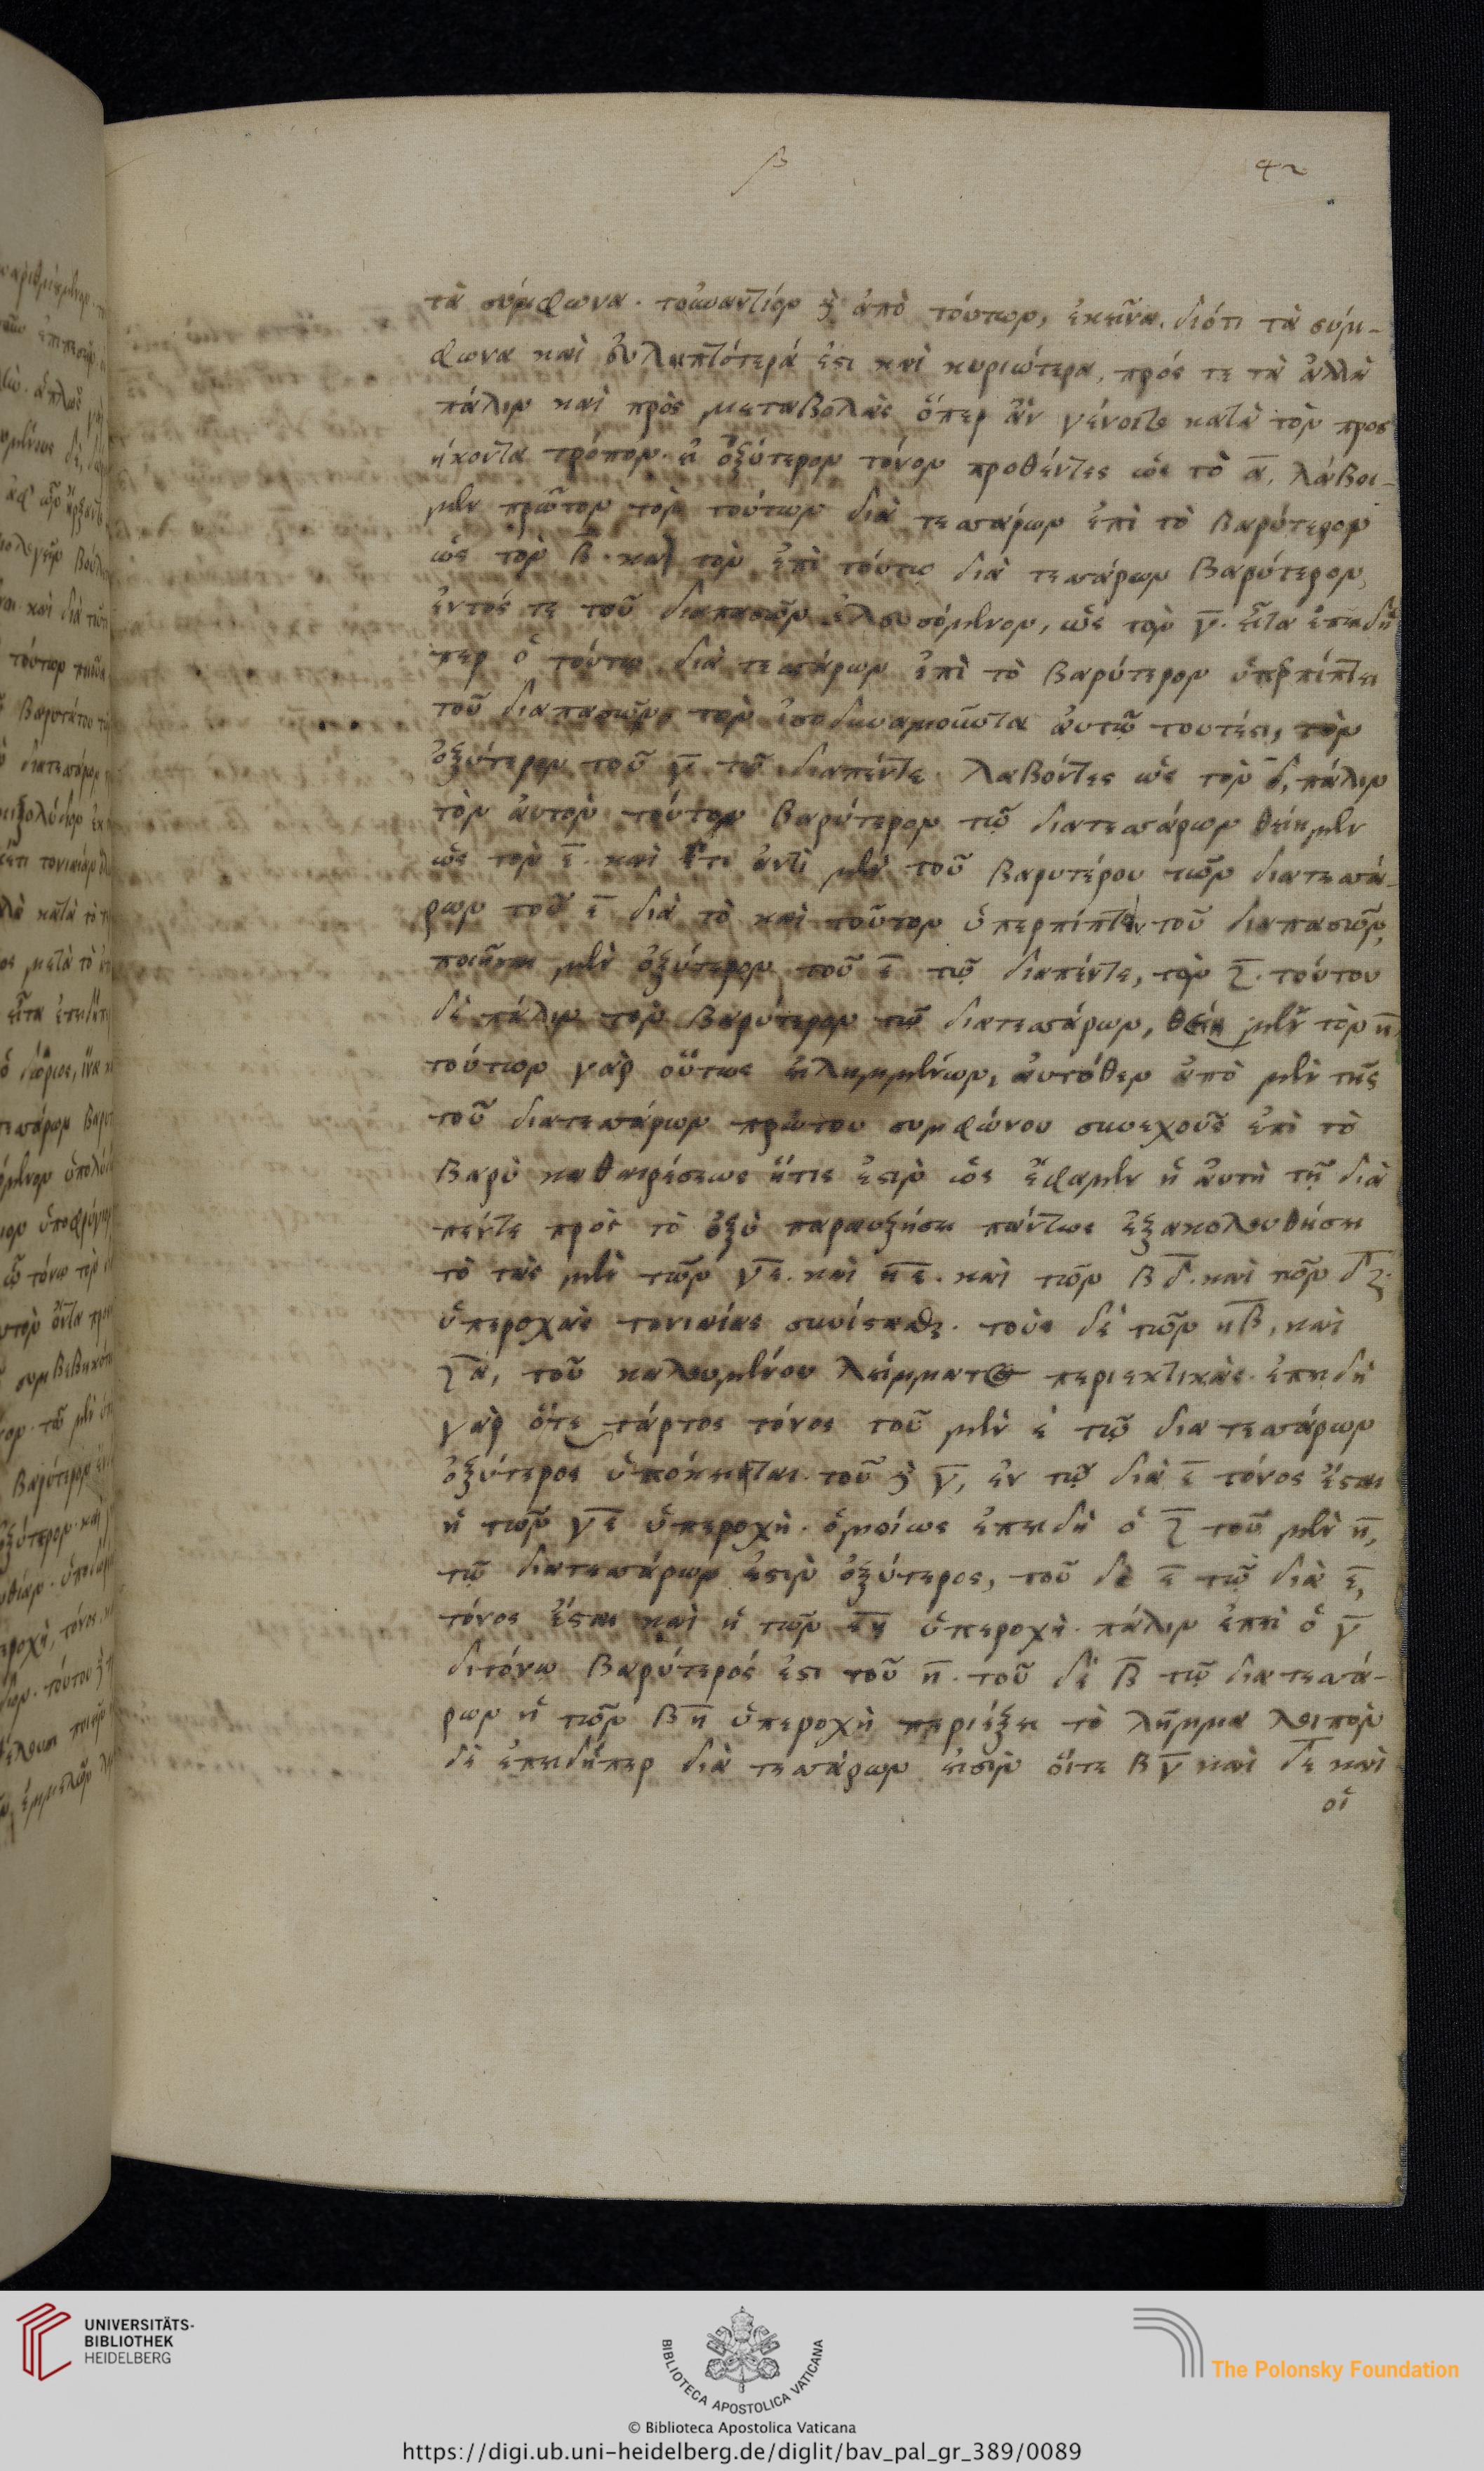 β
42
τὰ σύμφωνα. τοὐναντίον δὲ ἀπὸ τούτων, ἐκεῖνα. διότι τὰ σύμ-
φωνα καὶ εὐληπτότερά ἐστι καὶ κυριώτερα, πρός τε τὰ ἄλλα
πάλιν καὶ πρὸς μεταβολὰς ὅπερ ἂν γένοιτο κατὰ τὸν προσ
ήκοντα τρόπον. εἰ ὀξύτερον τόνον προθέντες ὡς τὸ α, λάβοι-
μεν πρῶτον τὸν τούτων διὰ τεσσάρων ἐπὶ τὸ βαρύτερον
ὡς τὸν β. καὶ τὸν ἐπὶ τούτω διὰ τεσσάρων βαρύτερον,
ἐντός τε τοῦ διαπασῶν ἐλευσόμενον, ὡς τὸν γ. εἶτα ἐπειδή
περ ὁ τούτω διὰ τεσσάρων ἐπὶ τὸ βαρύτερον ὑπερπίπτει
τοῦ διαπασῶν, τὸν ἰσοδυναμοῦντα αὐτῷ τουτέστι, τὸν
ὀξύτερον τοῦ γ τῷ διαπέντε λαβόντες ὡς τὸν δ, πάλιν
τὸν αὐτὸν τούτου βαρύτερον τῷ διατεσσάρων θείημεν
ὡς τὸν ε. καὶ ἔτι ἀντὶ μὲν τοῦ βαρυτέρου τῶν διατεσσά-
ρων τοῦ ε διὰ τὸ καὶ τοῦτον ὑπερπίπτειν τοῦ διαπασῶν,
ποιῆσαι μὲν ὀξύτερον τοῦ ε τῷ διαπέντε, τὸν ζ. τούτου
δὲ πάλιν τὸν βαρύτερον τῷ διατεσσάρων, θείημεν τὸν η,
τούτων γὰρ οὕτως εἰλημμένων, αὐτόθεν ἀπὸ μὲν τῆς
τοῦ διατεσσάρων πρώτου συμφώνου συνεχοῦς ἐπὶ τὸ
βαρὺ καθαιρέσεως ἥτις ἐστὶν ὡς ἔφαμεν ἡ αὐτὴ τῇ διὰ
πέντε πρὸς τὸ ὀξὺ παραυξήσει πάντως ἐξακολουθήσει
τὸ τὰς μὲν τῶν γε. καὶ ηε. καὶ τῶν βδ. καὶ τῶν δζ.
ὑπεροχὰς τονιαίας συνίστασθαι. τοὺς δὲ τῶν ηβ, καὶ
ζα, τοῦ καλουμένου λείμματος περιεκτικάς. ἐπειδὴ
γὰρ ὅτε τάρτος τόνος τοῦ μὲν ε τῷ διατεσσάρων
ὀξύτερος ὑπόκειται. τοῦ δὲ γ, ἐν τῷ διὰ ε τόνος ἔσται
ἡ τῶν γε ὑπεροχή. ὁμοίως ἐπειδὴ ὁ ζ τοῦ μὲν η,
τῷ διατεσσάρων ἐστὶν ὀξύτερος, τοῦ δὲ ε τῷ διὰ ε,
τόνος ἔσται καὶ ἡ τῶν εη ὑπεροχή. πάλιν ἐπεὶ ὁ γ
διτόνῳ βαρύτερός ἐστι τοῦ η. τοῦ δὲ β τῷ διατεσσά-
ρων ἡ τῶν βη ὑπεροχὴ περιέξει τὸ λῆμμα λοιπὸν
δὲ ἐπειδήπερ διὰ τεσσάρων εἰσὶν ὅιτε βγ καὶ δε καὶ
οἱ
UNIVERSITÄTS-
BIBLIOTHEK
HEIDELBERG
BIBLIOTECA APOSTOLICA VATICANA
The Polonsky Foundation
© Biblioteca Apostolica Vaticana
https://digi.ub.uni-heidelberg.de/diglit/bav_pal_gr_389/0089